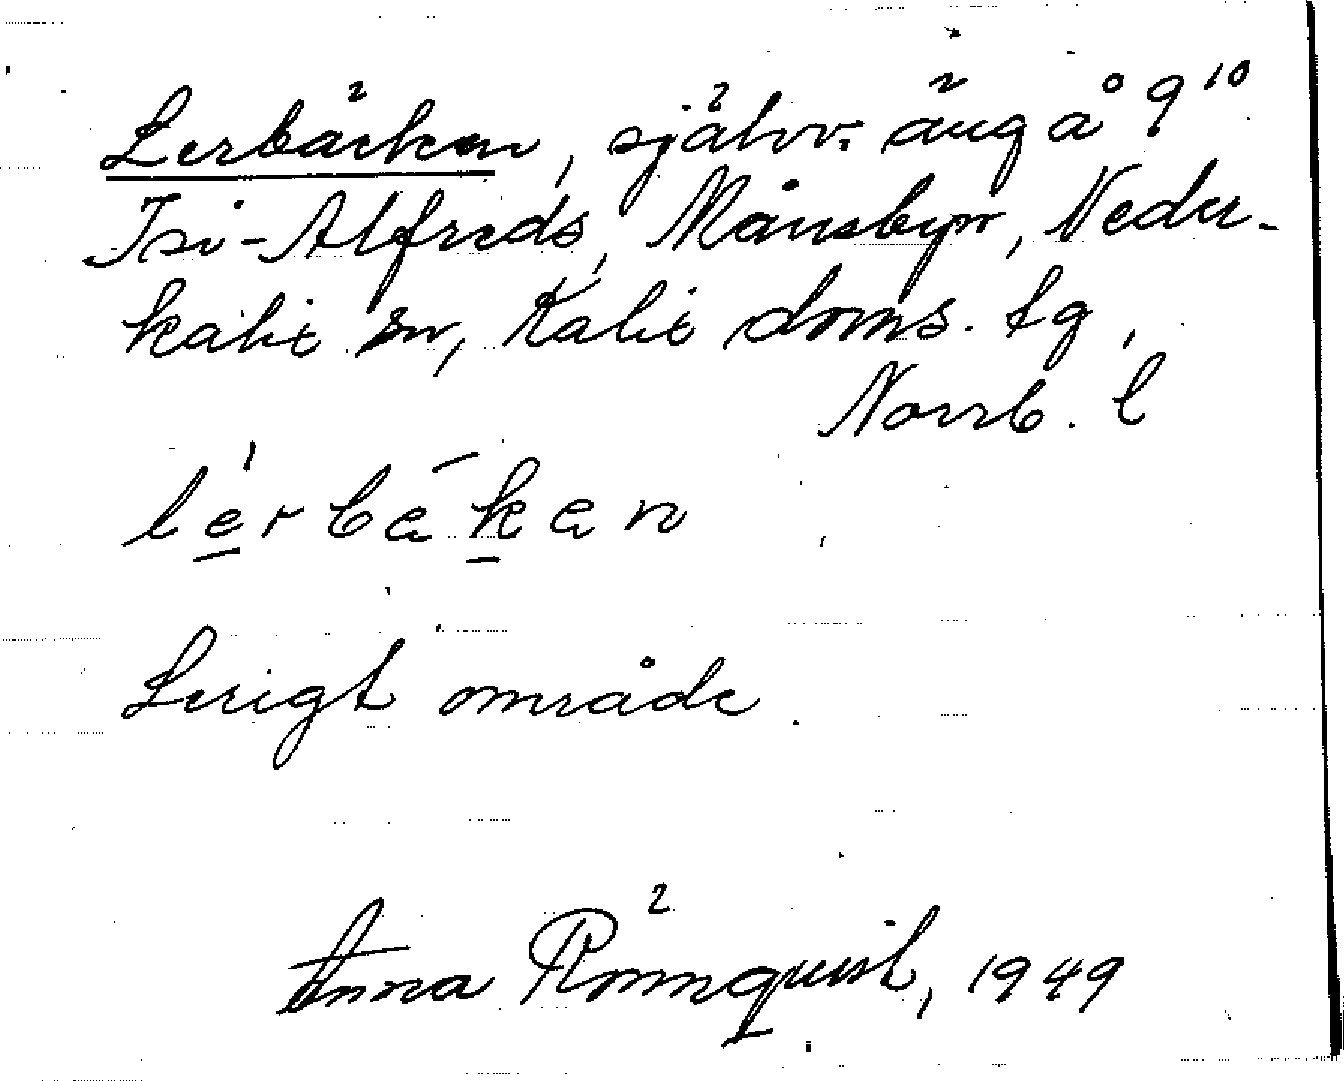 Lerbäcken, självv. äng å 9¹⁰
Isi-Alfreds, Månsbyn, Neder-
kalix sn, Kalix doms. tg,
Norrb. l
lerbäken
Lerigt område.
Anna Rönnquist, 1949